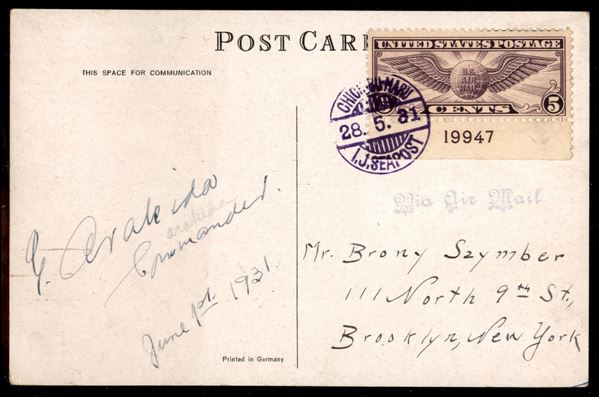 POST CAR
THIS SPACE FOR COMMUNICATION
UNITED STATES POSTAGE
U.S.
AIR
MAIL
5 CENTS 5
19947
28.5.31
I.J.SEAPOST
Via Air Mail
Commander.
June 1st. 1931.
Mr. Brony Szymber
111 North 9th St.,
Brooklyn, New York
Printed in Germany